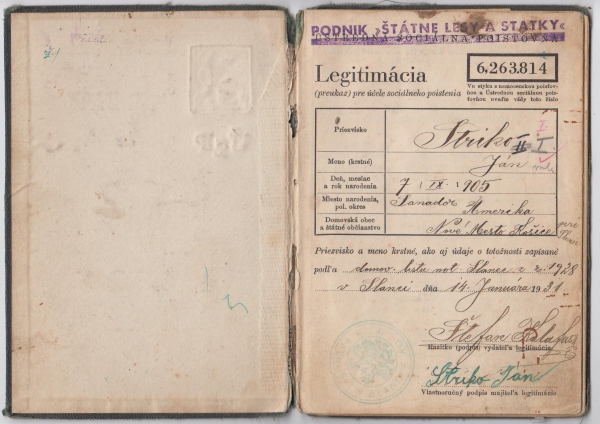 PODNIK „ŠTÁTNE LESY A STATKY“
ÚSTREDNÁ SOCIÁLNA POISTOVŇA
Legitimácia
(preukaz) pre účele sociálneho poistenia
6,263.814
Vo styku s nemocenskou poisťov-
ňou a Ústrednou sociálnou pois-
ťovňou uveďte vždy toto číslo
Priezvisko
Striko
II. I.
Meno (krstné)
Ján
Deň, mesiac
a rok narodenia
7 | IX. | 1905
Miesto narodenia,
pol. okres
Amerika
Domovská obec
a štátne občianstvo
Nové Mesto Košice
Priezvisko a meno krstné, ako aj údaje o totožnosti zapísané
podľa domov. listu not Slanec z r. 1928
v Slanci dňa 14 Januára 1931
Štefan
Razítko (podpis) vydateľa legitimácie
Striko Ján
Vlastnoručný podpis majiteľa legitimácie